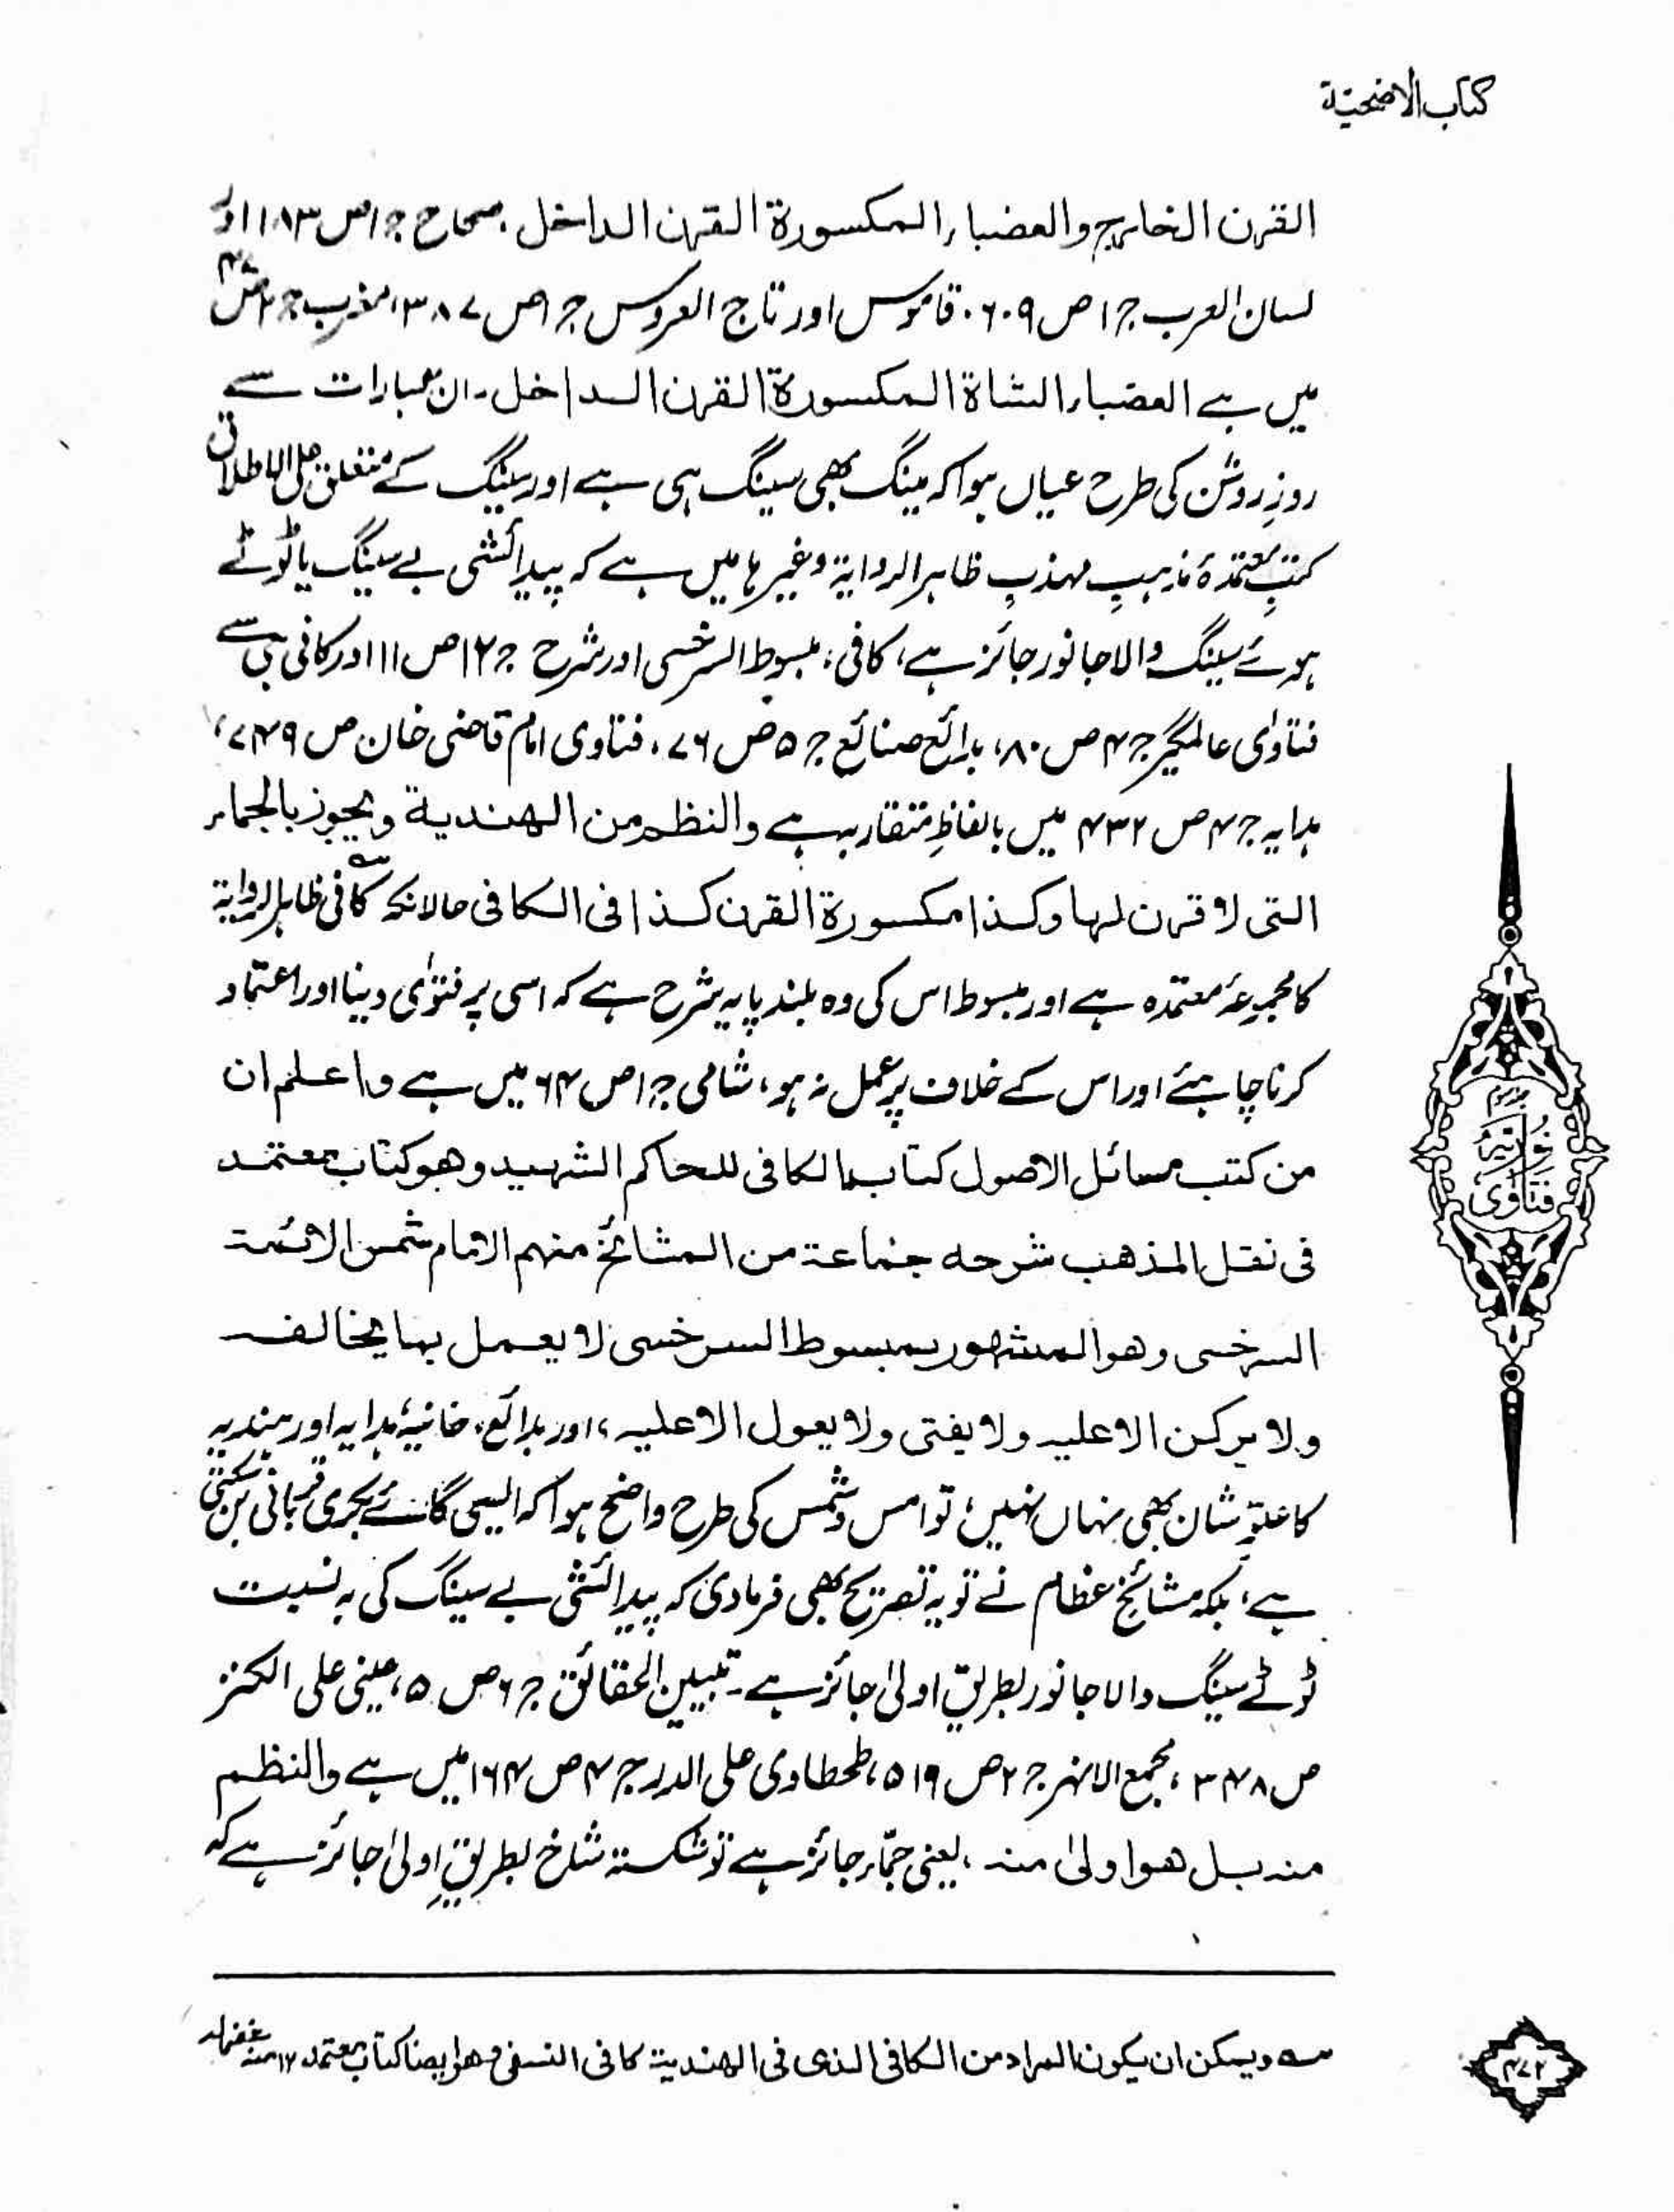 كتاب الاضحيّة
القرن الخارج والعضباء المكسورة القرن الداخل . صحاح ج ۱ص ۱۸۳ اور
لسان العرب ج ۱ ص ۶۰۹ . قاموس اور تاج العروس ج ۱ص ۳۸۷، مغرب ج ۲ ص ۴۷
میں ہے العضباء الشاة المكسورة القرن الداخل ۔ ان عبارات سے
روزِ روشن کی طرح عیاں ہوا کہ مینگ بھی سینگ ہی ہے اور سینگ کے متعلق علی الاطلاق
کتبِ معتمدۂ مذہبِ مہذب ظاہر الروایۃ وغیرہا میں ہے کہ پیدائشی بے سینگ یا ٹوٹے
ہوئے سینگ والا جانور جائز ہے، کافی، مبسوط السرخسی اور شرح ج ۱۲ص ۱۱ اور کافی ہی سے
فتاوٰی عالمگیر ج ۴ ص ۸۰، بدائع صنائع ج ۵ ص ۷۶، فتاوی امام قاضی خان ص ۷۴۹،
ہدایہ ج ۴ ص ۴۳۲ میں بالفاظِ متقاربہ ہے والنظم من الهندية ويجوز بالجماء
التى لا قرن لها وكذا مكسورة القرن كذا فى الكافى حالانکہ کافی ؎ ظاہر الروایۃ
کا مجموعۂ معتمدہ ہے اور مبسوط اس کی وہ بلند پایہ شرح ہے کہ اسی پر فتوٰی دینا اور اعتماد
کرنا چاہئے اور اس کے خلاف پر عمل نہ ہو، شامی ج ۱ص ۶۴ میں ہے واعلم ان
من كتب مسائل الاصول كتاب الكافى للحاكم الشهيد وهو كتاب معتمد
فى نقل المذهب شرحه جماعة من المشائخ منهم الامام شمس الائمة
السرخسى وهو المشهور بمبسوط السرخسى لا يعمل بما يخالفه
ولا يركن الا عليه ولا يفتى ولا يعول الا عليه، اور بدائع، خانیہ، ہدایہ اور ہندیہ
کا علوِّ شان بھی نہاں نہیں، تو امس و شمس کی طرح واضح ہوا کہ ایسی گائے بکری قربانی بن سکتی
ہے، بلکہ مشائخ عظام نے تو یہ تصریح بھی فرمادی کہ پیدائشی بے سینگ کی بہ نسبت
ٹوٹے سینگ والا جانور بطریقِ اولیٰ جائز ہے۔ تبیین الحقائق ج ۶ ص ۵، عینی علی الکنز
ص ۳۴۸، مجمع الانہر ج ۲ ص ۵۱۹، طحطاوی علی الدر ج ۴ ص ۱۶۴ میں ہے والنظم
منه بل هو اولىٰ منه، یعنی جمّاء جائز ہے تو شکستہ شاخ بطریقِ اولیٰ جائز ہے کہ
؎ ويمكن ان يكون المراد من الكافى الذى فى الهندية كافى النسفى وهو ايضا كتاب معتمد ۱۲ منه غفرلہ
جلد سوم
فتاوٰی نوریہ
۴۷۲